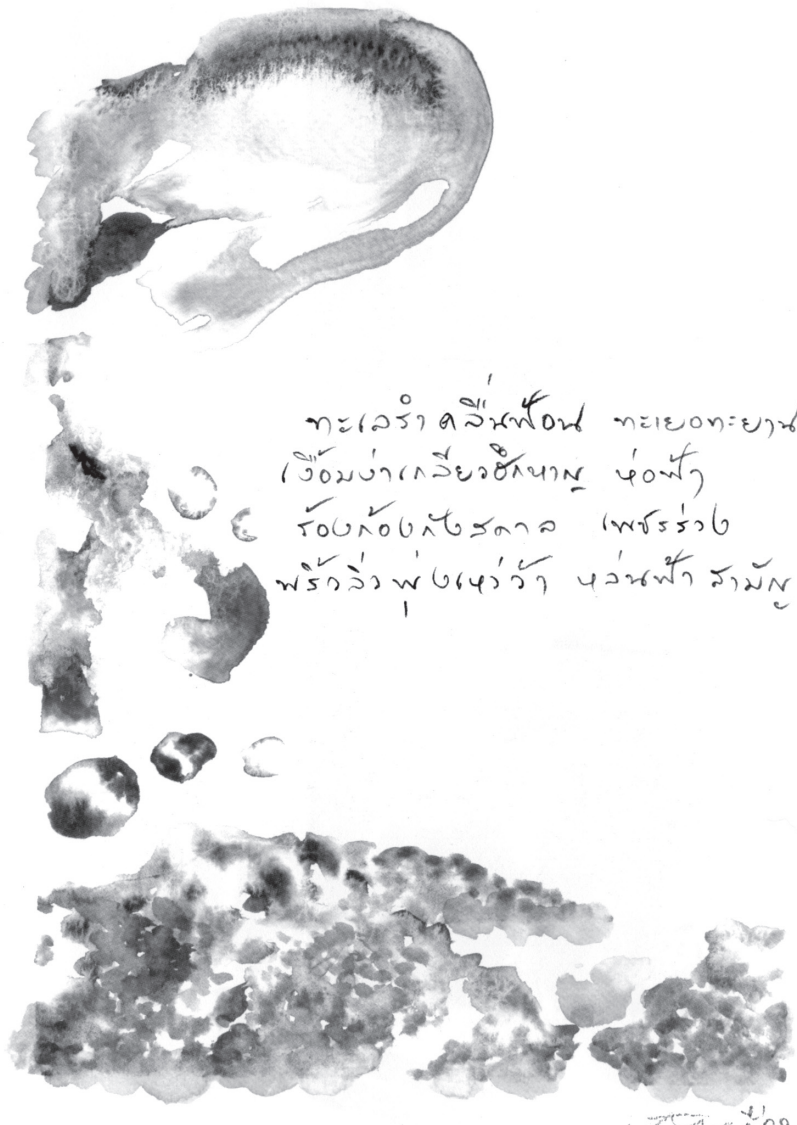 ทะเลรำคลื่นฟ้อน ทะเยอทะยาน
เงื้อมง่าเกลียวฮึกหาญ ห่อฟ้า
ร้องก้องกังสดาล เพชรร่วง
พริ้วลิ่วพุ่งเหว่ว้า หล่นฟ้า สามัญ